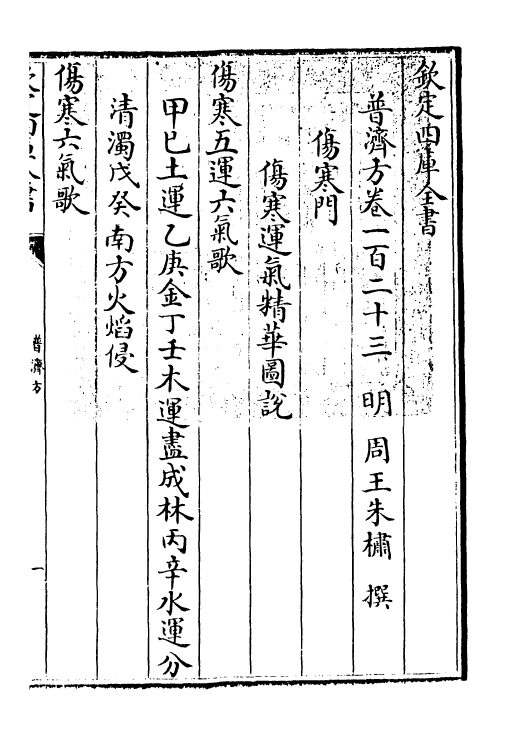 欽定四庫全書
普濟方卷一百二十三 明 周王朱橚 撰
傷寒門
傷寒運氣精華圖說
傷寒五運六氣歌
甲巳土運乙庚金丁壬木運盡成林丙辛水運分
清濁戊癸南方火焰侵
傷寒六氣歌
普濟方
一